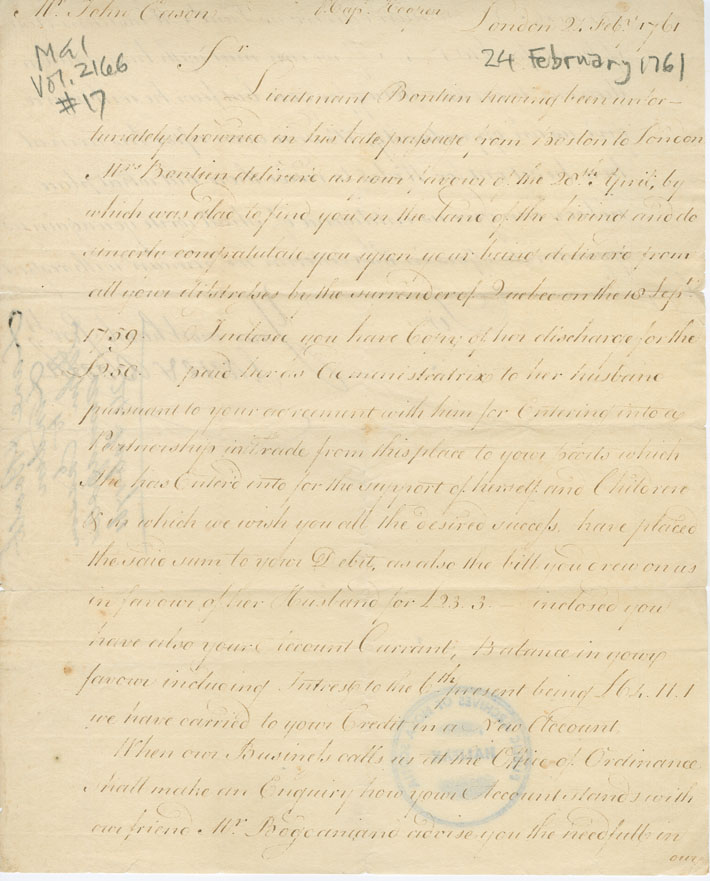 Mr. John Eason
Capt. Hooper
London 24 Feby. 1761
MG1
Vol. 2166
#17
24 February 1761
Sr.
Lieutenant Bontien having been unfor-
tunately drowned in his late passage from Boston to London
Mrs. Bontien deliver'd us your favour of the 20th. April, by
which was glad to find you in the land of the living and do
sincerly congratulate you upon your being deliver'd from
all your distresses by the surrender of Quebec on the 18 Sepr.
1759 Inclosed you have Copy of her discharge for the
£250 paid her as Administratrix to her husband
pursuant to your agreement with him for Entering into a
Partnership in Trade from this place to your parts which
She has Enter'd into for the support of herself and Children
& in which we wish you all the desired success, have placed
the said sum to your Debit, as also the bill you drew on us
in favour of her Husband for £23.3.— inclosed you
have also your Account Currant, Balance in your
favour including Intrest to the 6th. present being £64.11.1
we have carried to your Credit in a New Account
When our Business calls us at the Office of Ordinance
shall make an Enquiry how your Account stands with
our friend Mr. and advise you the needfull in
our